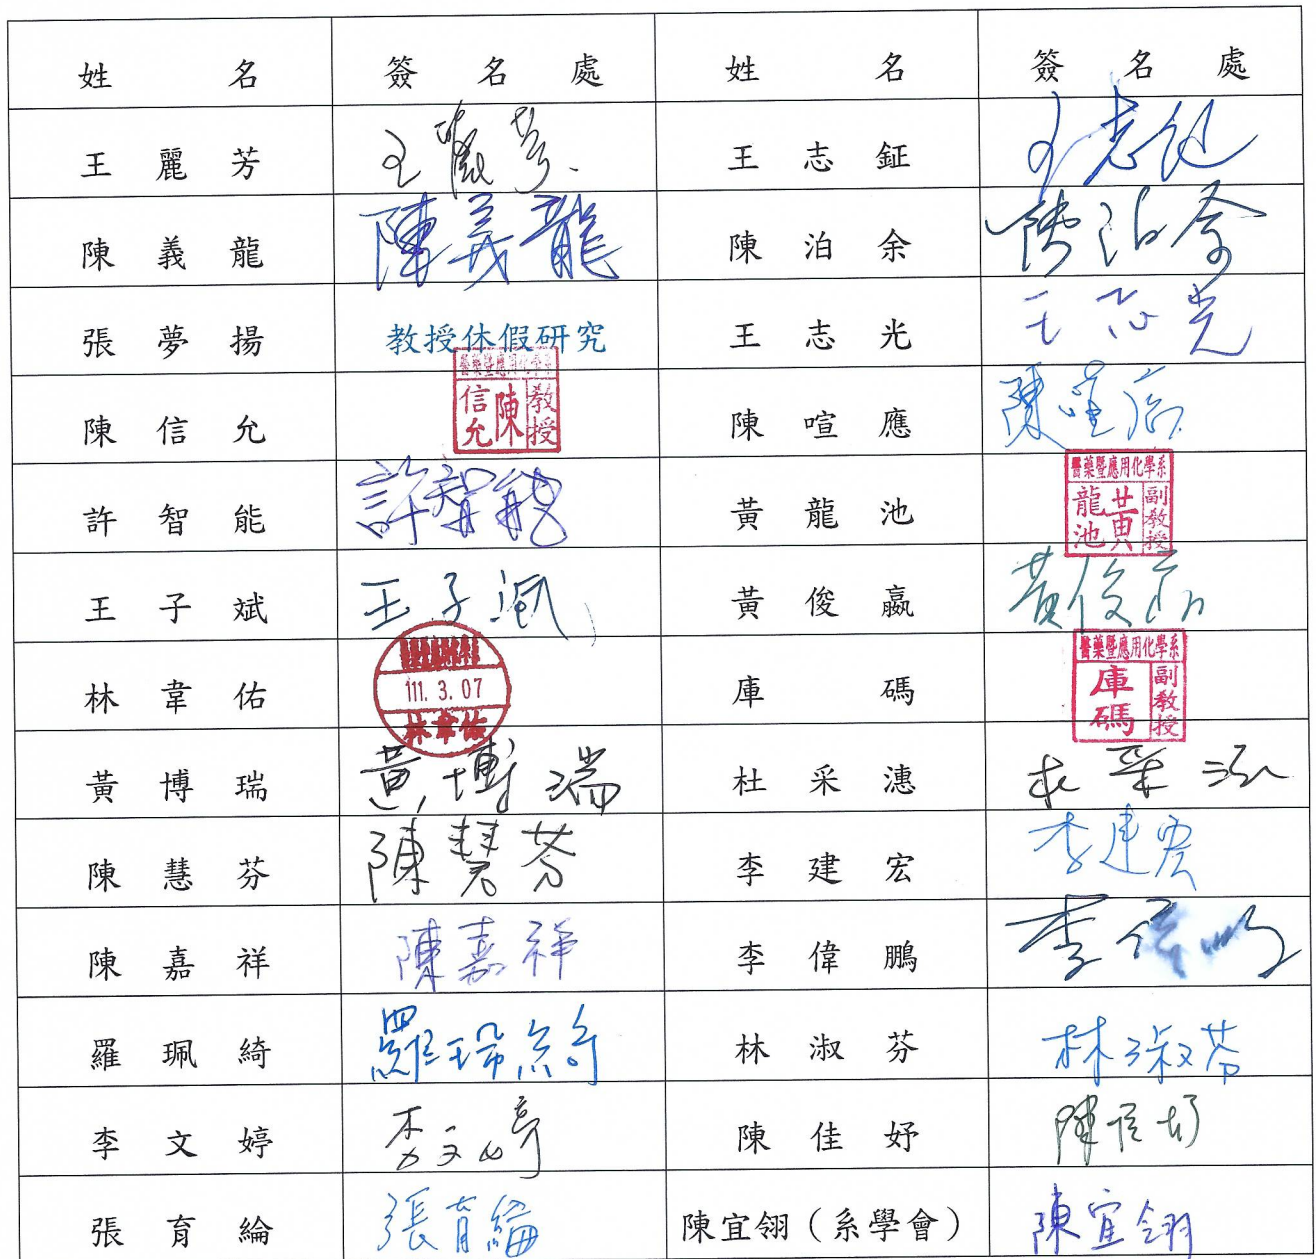 姓名 簽名處 姓名 簽名處
王麗芳 王麗芳 王志鉦 王志鉦
陳義龍 陳義龍 陳泊余 陳泊余
張夢揚 教授休假研究 王志光 王志光
陳信允 醫藥暨應用化學系 教授 陳信允 陳喧應 陳喧應
許智能 許智能 黃龍池 醫藥暨應用化學系 副教授 黃龍池
王子斌 王子斌 黃俊嬴 黃俊嬴
林韋佑 111. 3. 07 林韋佑 庫碼 醫藥暨應用化學系 副教授 庫碼
黃博瑞 黃博瑞 杜采潓 杜采潓
陳慧芬 陳慧芬 李建宏 李建宏
陳嘉祥 陳嘉祥 李偉鵬 李偉鵬
羅珮綺 羅珮綺 林淑芬 林淑芬
李文婷 李文婷 陳佳妤 陳佳妤
張育綸 張育綸 陳宜翎（系學會） 陳宜翎